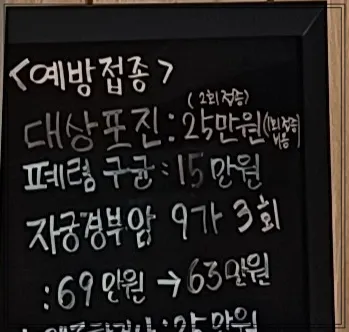 <예방접종>
(2회 접종)
대상포진 : 25만원 (1회 접종 비용)
폐렴구균 : 15만원
자궁경부암 9가 3회
: 69만원 → 63만원
: 25만원